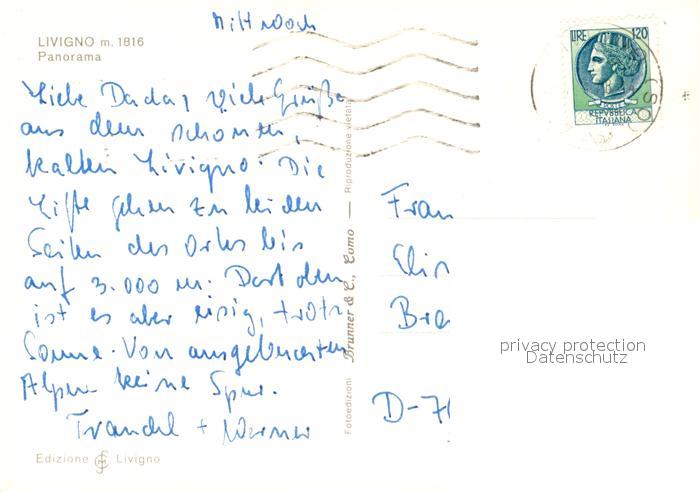 Mittwoch
LIVIGNO m. 1816
Panorama
Liebe Dada, viele Grüße
aus dem schönen,
kalten Livigno. Die
Lifte gehen zu beiden
Seiten des Ortes bis
auf 3.000 m. Dort oben
ist es aber eisig, trotz
Sonne. Von ausgebuchten
Alpen keine Spur.
Traudel + Werner
Edizione Livigno
Fotoedizioni Brunner & C., Como — Riproduzione vietata
LIRE 120
REPVBBLICA
ITALIANA
Frau
Elis
Bra
D-71
privacy protection
Datenschutz